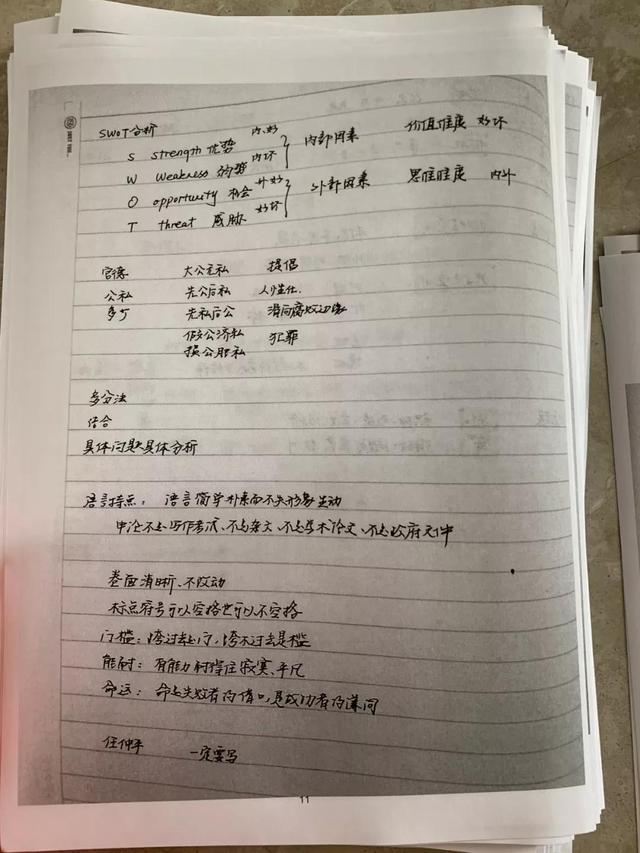 SWOT分析
S strength 优势 内好
W weakness 弱势 内坏 内部因素 价值维度 好坏
O opportunity 机会 外好
T threat 威胁 外部因素 思维维度 内外
官德 大公无私 提倡
公私 先公后私 人性化.
多少 先私后公 滑向腐败边缘
假公济私 犯罪
损公肥私
多分法
结合
具体问题具体分析
语言特点: 语言简单朴素而不失形象生动
申论不是写作考试、不是杂文、不是学术论文、不是政府文件
卷面清晰、不改动
标点符号可以空格也可以不空格
门槛: 跨过去是门, 跨不过去是槛
能耐: 有能力耐得住寂寞、平凡
命运: 命是失败者的借口, 是成功者的谦词
任仲平 一定要写
11